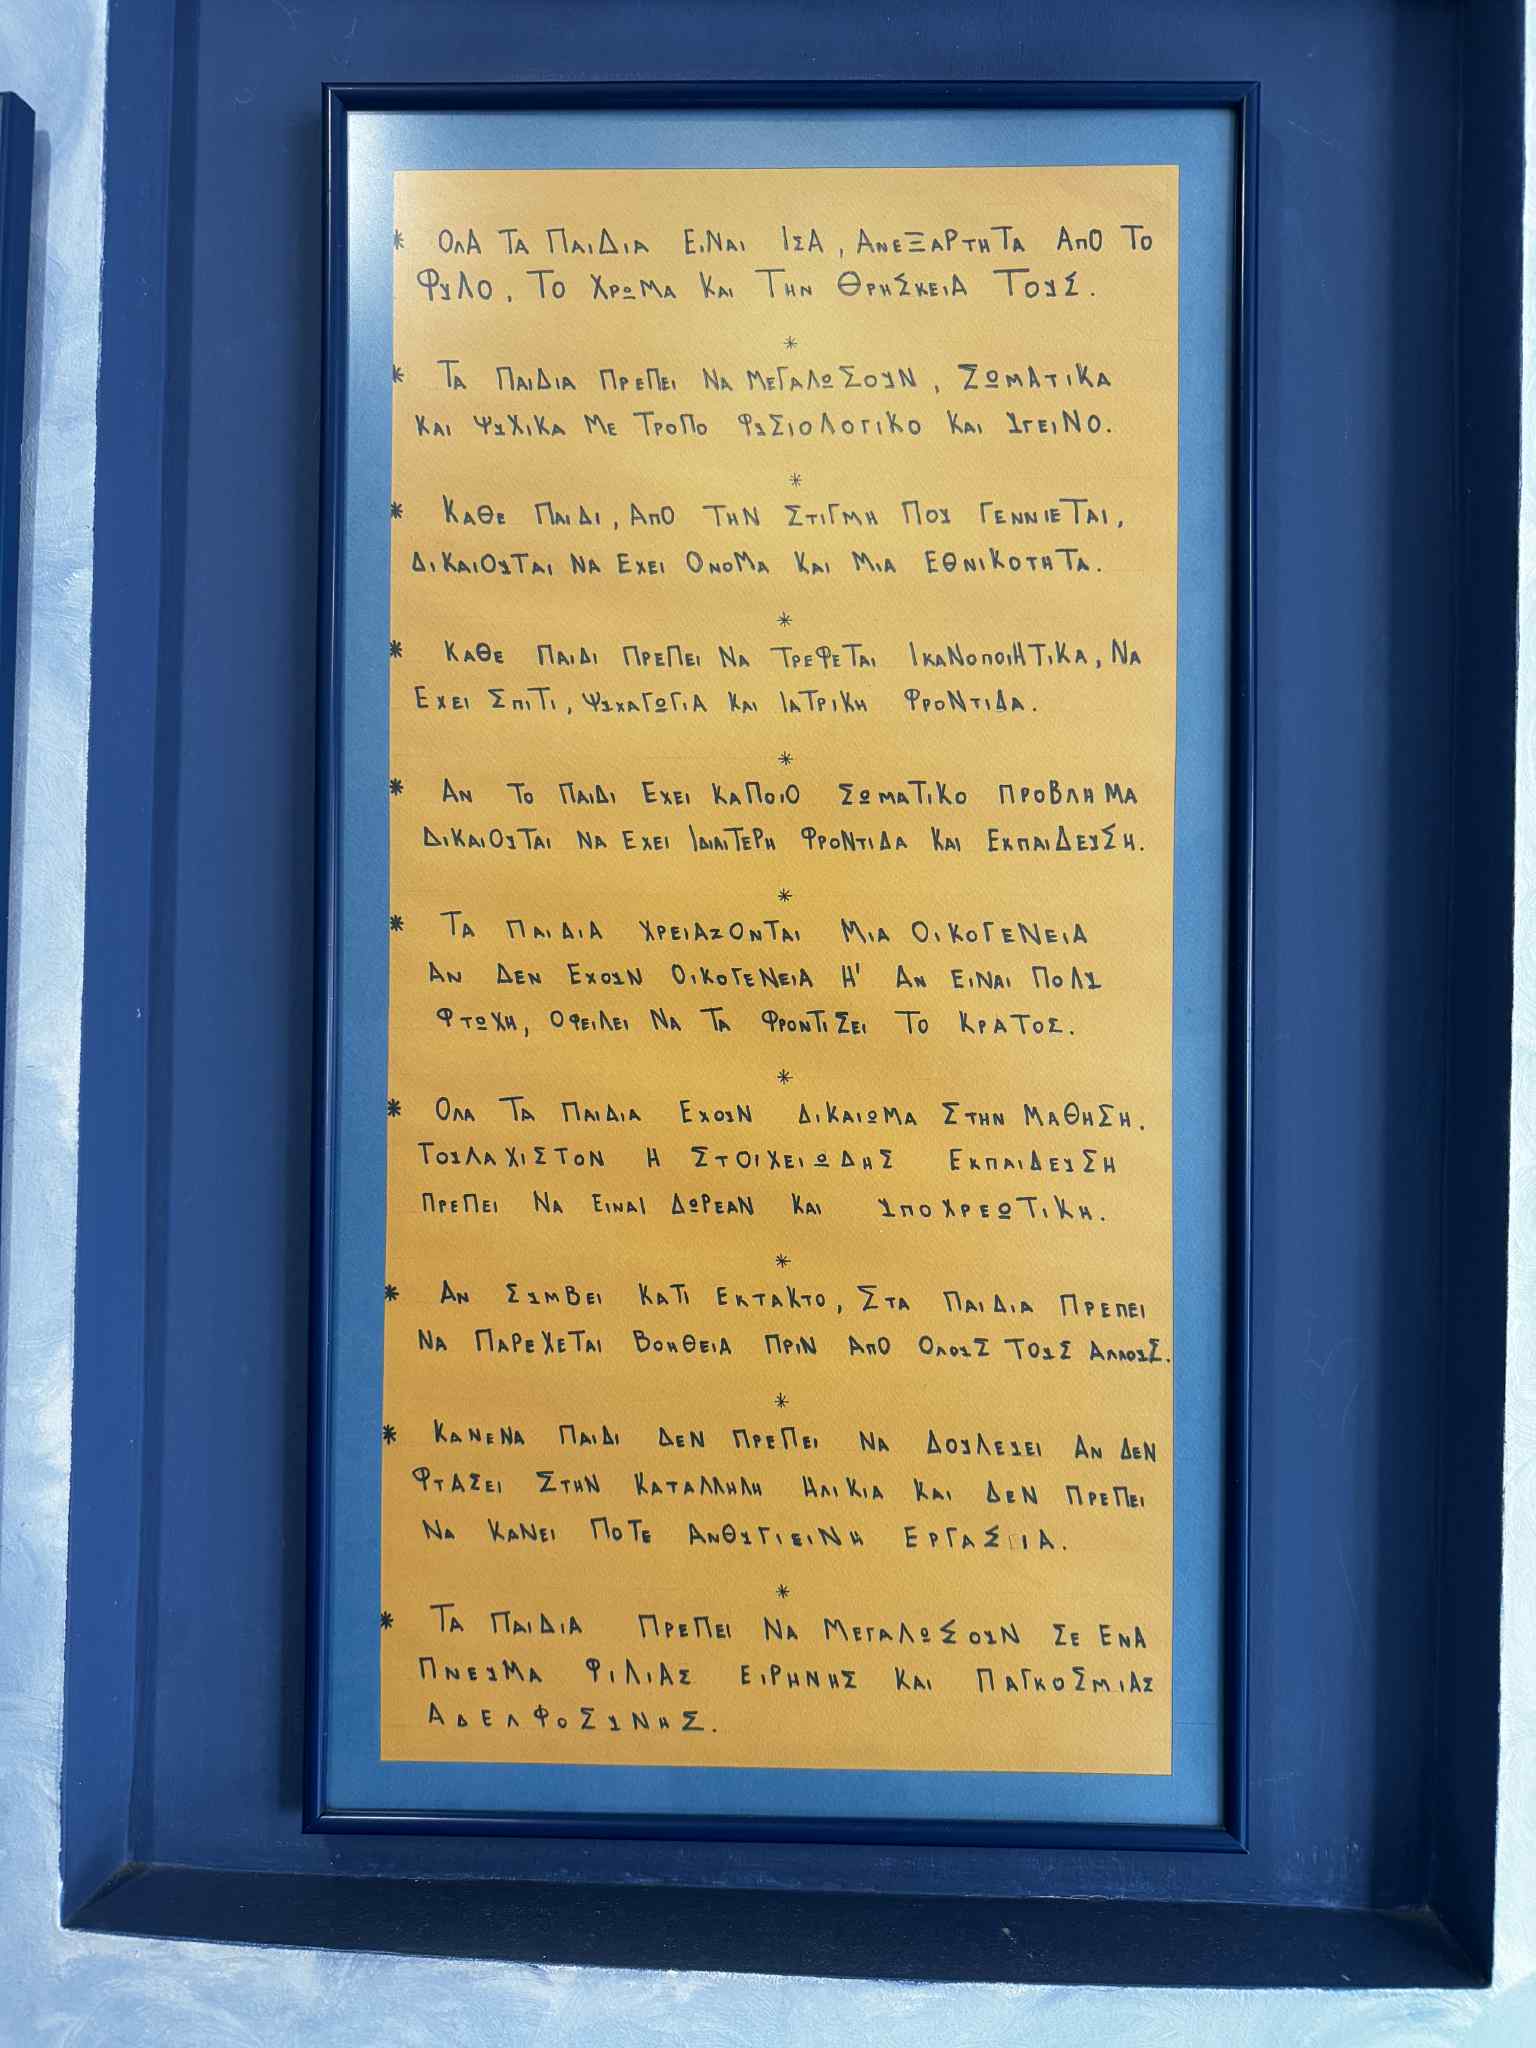 * ΟΛΑ ΤΑ ΠΑΙΔΙΑ ΕΙΝΑΙ ΙΣΑ, ΑΝΕΞΑΡΤΗΤΑ ΑΠΟ ΤΟ
ΦΥΛΟ, ΤΟ ΧΡΩΜΑ ΚΑΙ ΤΗΝ ΘΡΗΣΚΕΙΑ ΤΟΥΣ.
*
* ΤΑ ΠΑΙΔΙΑ ΠΡΕΠΕΙ ΝΑ ΜΕΓΑΛΩΣΟΥΝ, ΣΩΜΑΤΙΚΑ
ΚΑΙ ΨΥΧΙΚΑ ΜΕ ΤΡΟΠΟ ΦΥΣΙΟΛΟΓΙΚΟ ΚΑΙ ΥΓΕΙΝΟ.
*
* ΚΑΘΕ ΠΑΙΔΙ, ΑΠΟ ΤΗΝ ΣΤΙΓΜΗ ΠΟΥ ΓΕΝΝΙΕΤΑΙ,
ΔΙΚΑΙΟΥΤΑΙ ΝΑ ΕΧΕΙ ΟΝΟΜΑ ΚΑΙ ΜΙΑ ΕΘΝΙΚΟΤΗΤΑ.
*
* ΚΑΘΕ ΠΑΙΔΙ ΠΡΕΠΕΙ ΝΑ ΤΡΕΦΕΤΑΙ ΙΚΑΝΟΠΟΙΗΤΙΚΑ, ΝΑ
ΕΧΕΙ ΣΠΙΤΙ, ΨΥΧΑΓΩΓΙΑ ΚΑΙ ΙΑΤΡΙΚΗ ΦΡΟΝΤΙΔΑ.
*
* ΑΝ ΤΟ ΠΑΙΔΙ ΕΧΕΙ ΚΑΠΟΙΟ ΣΩΜΑΤΙΚΟ ΠΡΟΒΛΗΜΑ
ΔΙΚΑΙΟΥΤΑΙ ΝΑ ΕΧΕΙ ΙΔΙΑΙΤΕΡΗ ΦΡΟΝΤΙΔΑ ΚΑΙ ΕΚΠΑΙΔΕΥΣΗ.
*
* ΤΑ ΠΑΙΔΙΑ ΧΡΕΙΑΖΟΝΤΑΙ ΜΙΑ ΟΙΚΟΓΕΝΕΙΑ
ΑΝ ΔΕΝ ΕΧΟΥΝ ΟΙΚΟΓΕΝΕΙΑ Η' ΑΝ ΕΙΝΑΙ ΠΟΛΥ
ΦΤΩΧΗ, ΟΦΕΙΛΕΙ ΝΑ ΤΑ ΦΡΟΝΤΙΣΕΙ ΤΟ ΚΡΑΤΟΣ.
*
* ΟΛΑ ΤΑ ΠΑΙΔΙΑ ΕΧΟΥΝ ΔΙΚΑΙΩΜΑ ΣΤΗΝ ΜΑΘΗΣΗ.
ΤΟΥΛΑΧΙΣΤΟΝ Η ΣΤΟΙΧΕΙΩΔΗΣ ΕΚΠΑΙΔΕΥΣΗ
ΠΡΕΠΕΙ ΝΑ ΕΙΝΑΙ ΔΩΡΕΑΝ ΚΑΙ ΥΠΟΧΡΕΩΤΙΚΗ.
*
* ΑΝ ΣΥΜΒΕΙ ΚΑΤΙ ΕΚΤΑΚΤΟ, ΣΤΑ ΠΑΙΔΙΑ ΠΡΕΠΕΙ
ΝΑ ΠΑΡΕΧΕΤΑΙ ΒΟΗΘΕΙΑ ΠΡΙΝ ΑΠΟ ΟΛΟΥΣ ΤΟΥΣ ΑΛΛΟΥΣ.
*
* ΚΑΝΕΝΑ ΠΑΙΔΙ ΔΕΝ ΠΡΕΠΕΙ ΝΑ ΔΟΥΛΕΥΕΙ ΑΝ ΔΕΝ
ΦΤΑΣΕΙ ΣΤΗΝ ΚΑΤΑΛΛΗΛΗ ΗΛΙΚΙΑ ΚΑΙ ΔΕΝ ΠΡΕΠΕΙ
ΝΑ ΚΑΝΕΙ ΠΟΤΕ ΑΝΘΥΓΙΕΙΝΗ ΕΡΓΑΣΙΑ.
*
* ΤΑ ΠΑΙΔΙΑ ΠΡΕΠΕΙ ΝΑ ΜΕΓΑΛΩΣΟΥΝ ΣΕ ΕΝΑ
ΠΝΕΥΜΑ ΦΙΛΙΑΣ ΕΙΡΗΝΗΣ ΚΑΙ ΠΑΓΚΟΣΜΙΑΣ
ΑΔΕΛΦΟΣΥΝΗΣ.